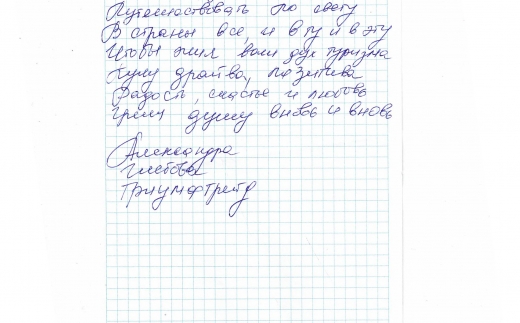 Путешествовать по свету
В страны все и в ту и в эту
Чтобы жил вами дух туризма
Кучу драйва, позитива
Радость, счастье и любовь
Грели душу вновь и вновь
Александра
Глебова
Триумф Трейд